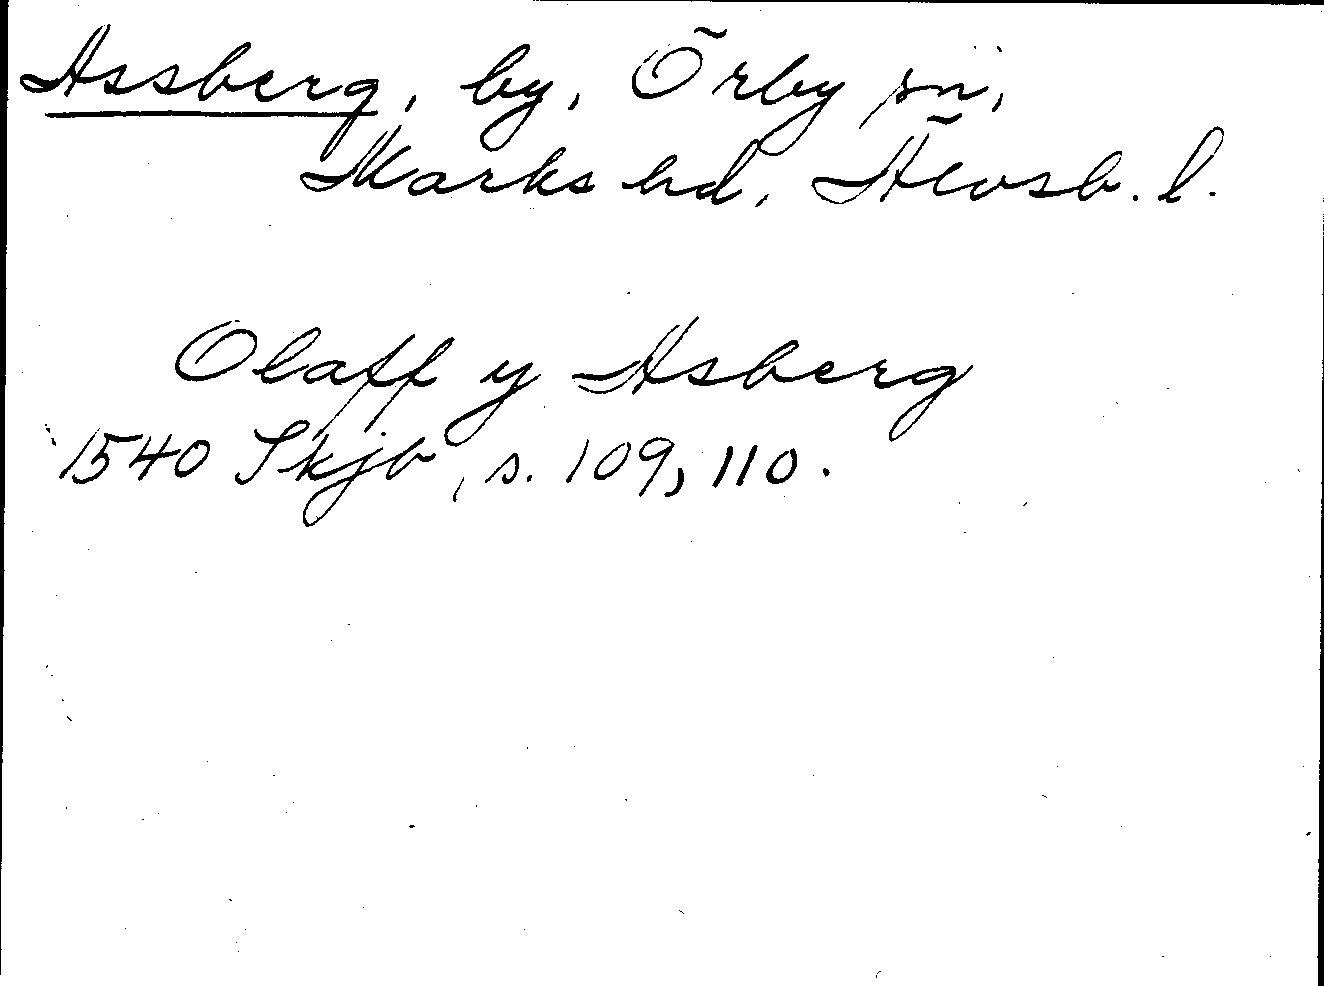 Assberg, by, Örby sn,
Marks hd, Älvsb. l.
Olaff y Asberg
1540 Skjb, s. 109, 110.